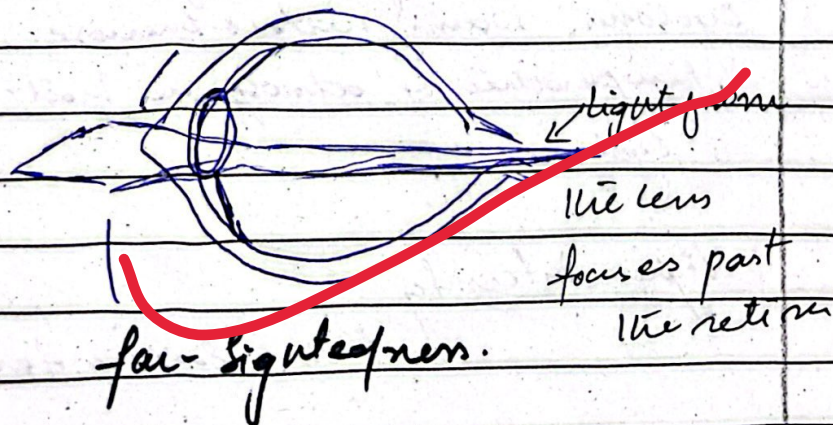 light from
the lens
focuses past
the retina
far-sightedness.